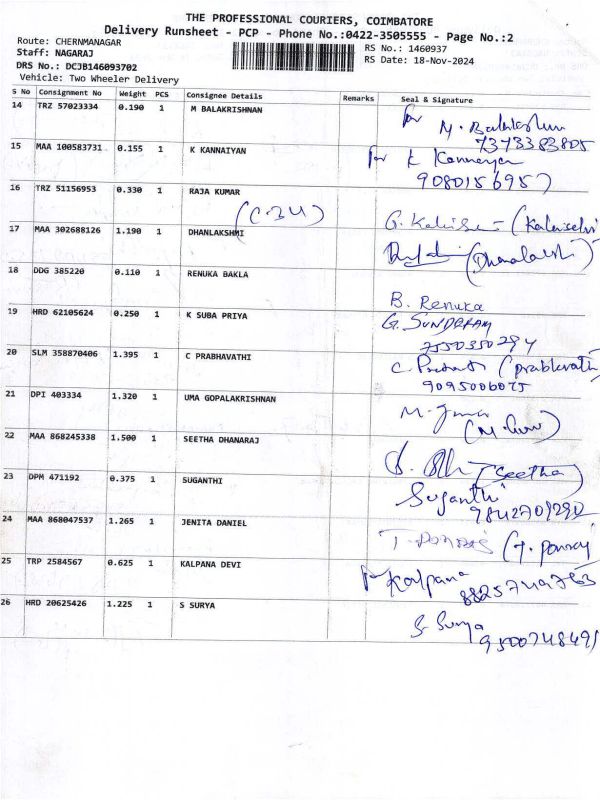 THE PROFESSIONAL COURIERS, COIMBATORE
Delivery Runsheet - PCP - Phone No.:0422-3505555 - Page No.:2
Route: CHERNMANAGAR
RS No.: 1460937
Staff: NAGARAJ
RS Date: 18-Nov-2024
DRS No.: DCJB146093702
Vehicle: Two Wheeler Delivery
S No Consignment No Weight PCS Consignee Details Remarks Seal & Signature
14 TRZ 57023334 0.190 1 M BALAKRISHNAN
for M. Balakrishnan
7373383805
15 MAA 100583731 0.155 1 K KANNAIYAN
for K Kannaiyan
9080156957
16 TRZ 51156953 0.330 1 RAJA KUMAR
(C.34)
G. Kalaiselvi (Kalaiselvi)
17 MAA 302688126 1.190 1 DHANLAKSHMI
(Dhanalakshmi)
18 DDG 385220 0.110 1 RENUKA BAKLA
B. Renuka
19 HRD 62105624 0.250 1 K SUBA PRIYA
G. SUNDERAM
7550350294
20 SLM 358870406 1.395 1 C PRABHAVATHI
C. (prabhavathi
9095006075
21 DPI 403334 1.320 1 UMA GOPALAKRISHNAN
M.
22 MAA 868245338 1.500 1 SEETHA DHANARAJ
(Seetha)
23 DPM 471192 0.375 1 SUGANTHI
Suganthi
9842701290
24 MAA 868047537 1.265 1 JENITA DANIEL
T. Ponraj (T. Ponraj
25 TRP 2584567 0.625 1 KALPANA DEVI
for Kalpana
8825749763
26 HRD 20625426 1.225 1 S SURYA
S. Surya
9500748491